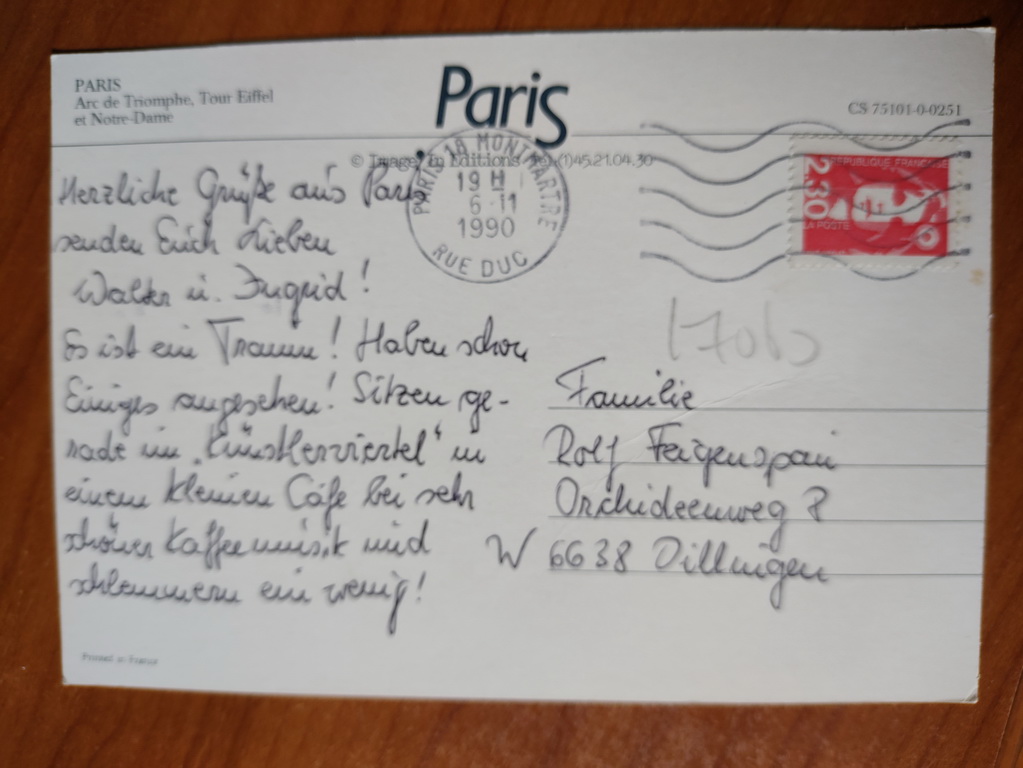 PARIS
Arc de Triomphe, Tour Eiffel
et Notre-Dame
Paris
CS 75101-0-0251
© Image'In Editions Tél. (1)45.21.04.30
PARIS 18 MONTMARTRE
19 H
6-11
1990
RUE DUC
RÉPUBLIQUE FRANÇAISE
2,30
LA POSTE
Herzliche Grüße aus Paris,
senden Euch Lieben
Walter u. Ingrid!
Es ist ein Traum! Haben schon
Einiges angesehen! Sitzen ge-
rade im „Künstlerviertel" in
einem kleinen Cafe bei sehr
schöner Kaffeemusik und
schlemmern ein wenig!
Familie
Rolf Feigenspan
Orchideenweg 8
W 6638 Dillingen
Printed in France